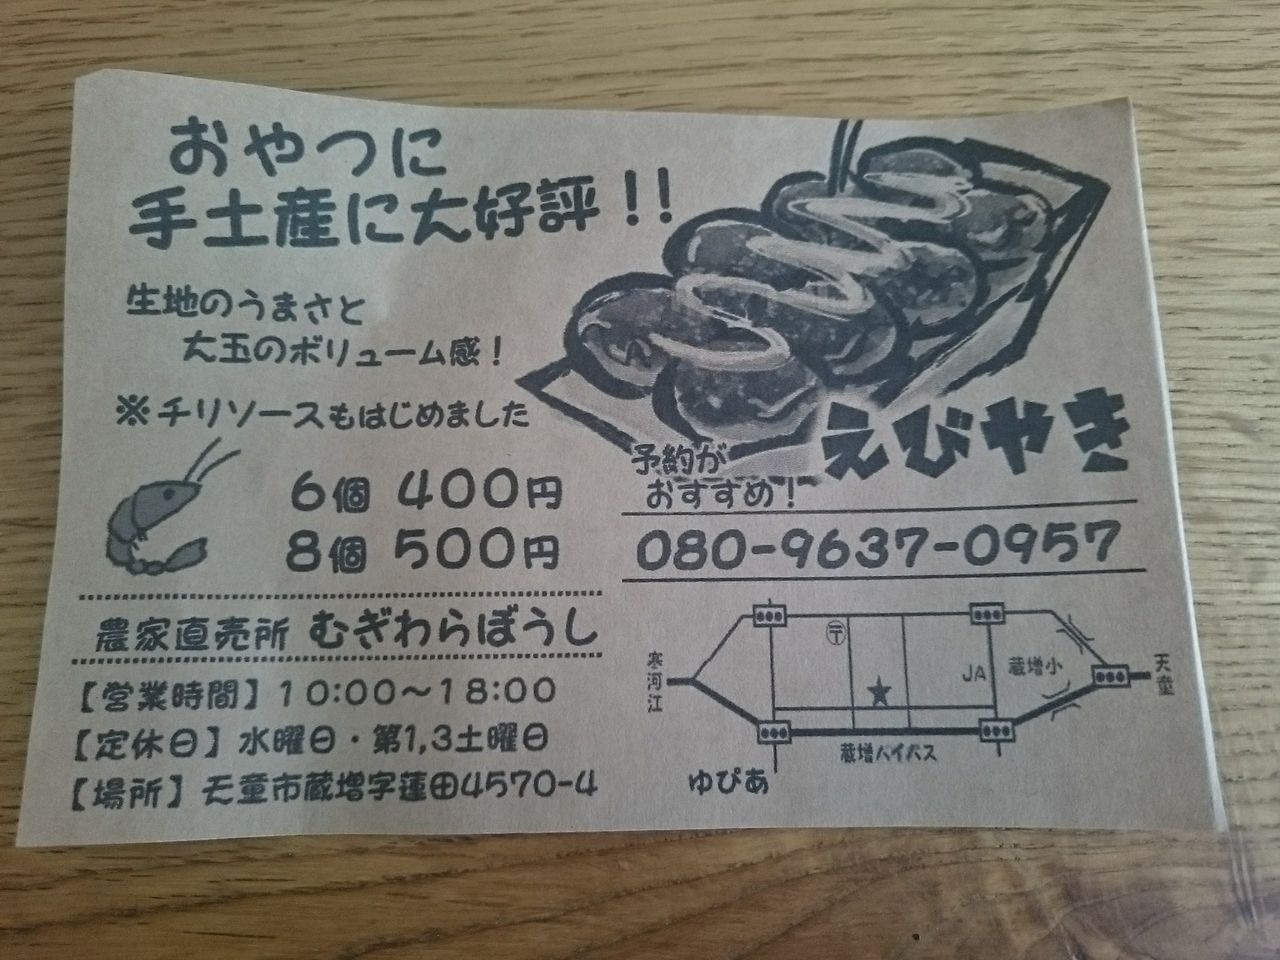 おやつに
手土産に大好評！！
生地のうまさと
大玉のボリューム感！
※チリソースもはじめました
6個 400円
8個 500円
えびやき
予約が
おすすめ！
080-9637-0957
農家直売所 むぎわらぼうし
【営業時間】10:00〜18:00
【定休日】水曜日・第1,3土曜日
【場所】天童市蔵増字蓮田4570-4
寒河江
〒
★
JA
蔵増小
天童
蔵増バイパス
ゆぴあ